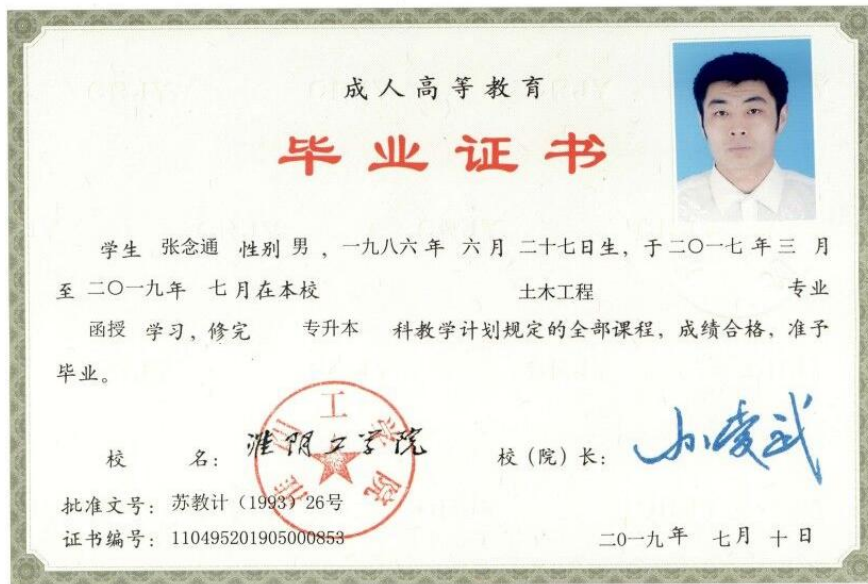 成人高等教育
毕业证书
学生 张念通 性别 男 ，一九八六 年 六 月 二十七日生，于二〇一七 年 三 月
至 二〇一九年 七月在本校 土木工程 专业
函授 学习，修完 专升本 科教学计划规定的全部课程，成绩合格，准予
毕业。
校 名：淮阴工学院
校（院）长：
批准文号：苏教计（1993）26号
证书编号：110495201905000853
二〇一九年 七月 十日